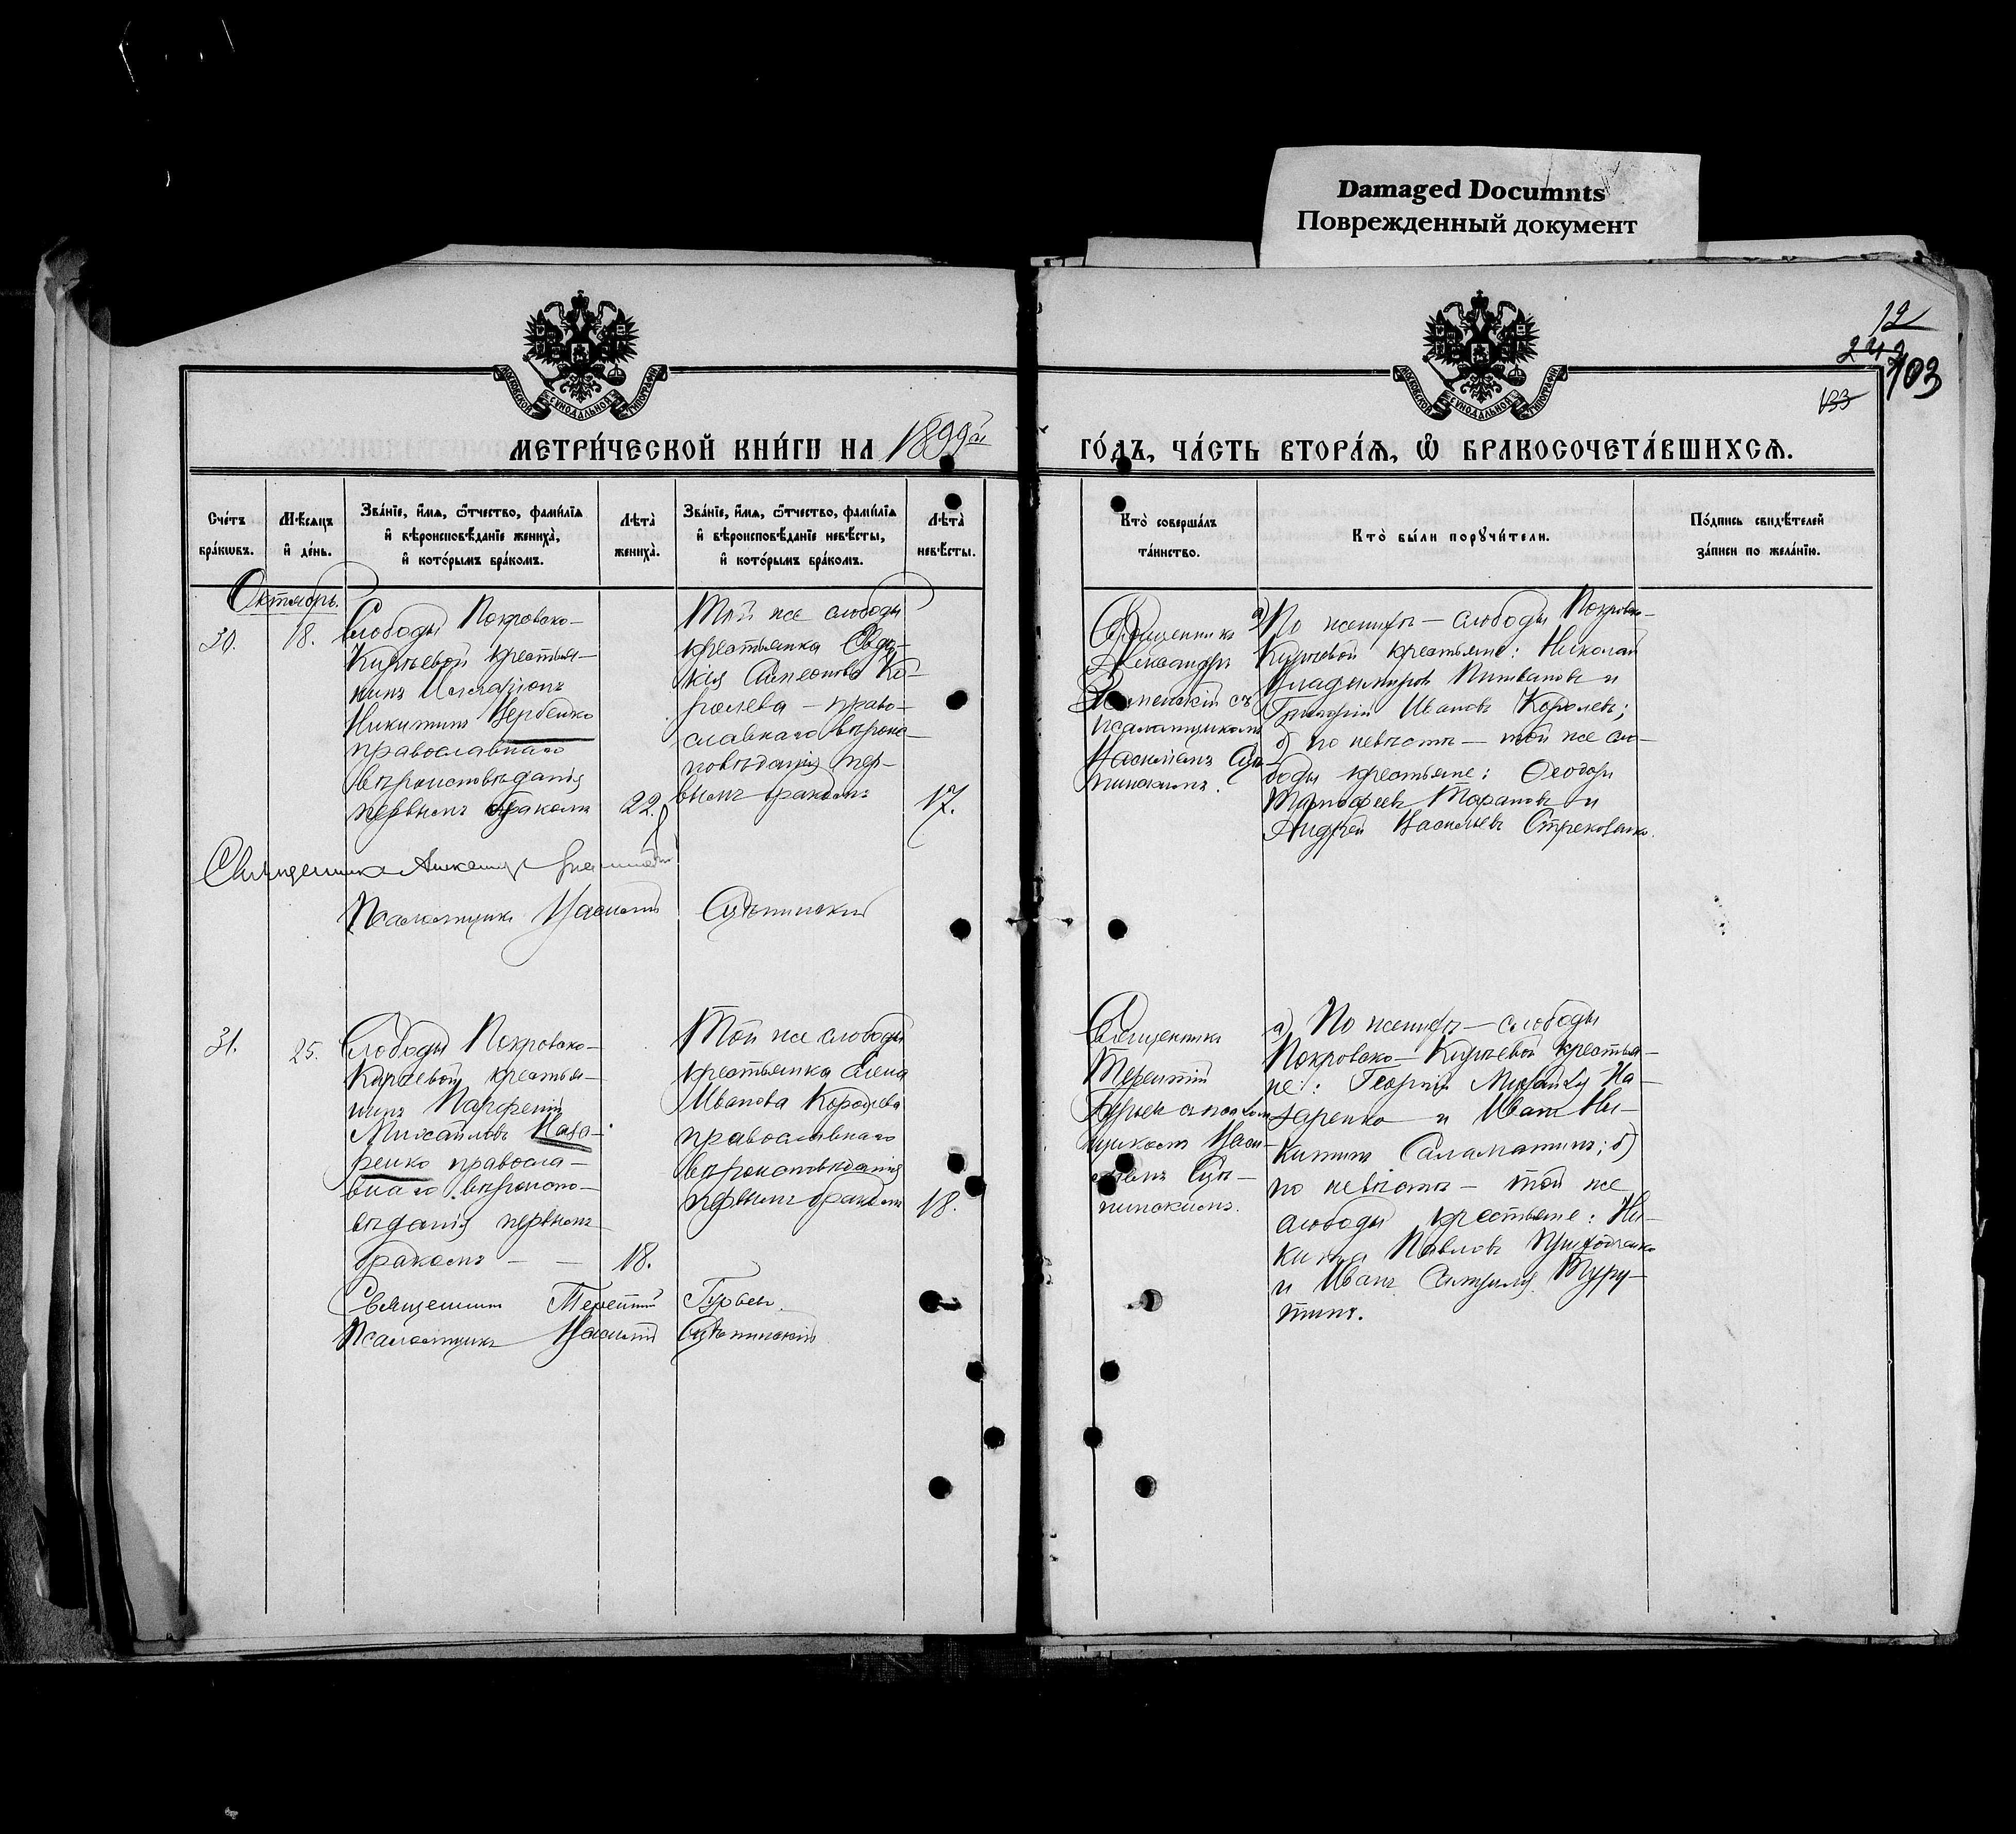 Damaged Documnts
Поврежденный документ
12
242
103
133
МОСКОВСКОЙ СѴНОДАЛЬНОЙ ТИПОГРАФІИ
МОСКОВСКОЙ СѴНОДАЛЬНОЙ ТИПОГРАФІИ
МЕТРИ́ЧЕСКОЙ КНИ́ГИ НА 1899й
ГО́ДЪ, ЧА́СТЬ ВТОРА́Ѧ, Ѡ҆ БРАКОСОЧЕТА́ВШИХСѦ.
Сче́тъ
бра́кѡвъ.
Мѣ́сѧцъ
и҆ де́нь.
Зва́нїе, и҆́мѧ, ѻ҆́тчество, фами́лїѧ
и҆ вѣроисповѣ́данїе жениха̀,
и҆ кото́рымъ бра́комъ.
Лѣта̀
жениха̀.
Зва́нїе, и҆́мѧ, ѻ҆́тчество, фами́лїѧ
и҆ вѣроисповѣ́данїе невѣ́сты,
и҆ кото́рымъ бра́комъ.
Лѣта̀
невѣ́сты.
Кто̀ соверша́лъ
та́инство.
Кто̀ бы́ли порꙋчи́тели.
По́дпись свидѣ́телей
за́писи по жела́нїю.
Октябрь.
30.
18.
Слободы Покровско-
Кирѣевой крестья-
нинъ
Никитинъ Вербенко
православнаго
вѣроисповѣданія
первымъ бракомъ
22.
Той же слободы
крестьянка Евдо-
кія Симеонова Ко-
ролева - право-
славнаго вѣроис-
повѣданія пер-
вымъ бракомъ
17.
Священникъ
Александръ
съ
псаломщикомъ
Василіемъ
а) По женихѣ - слободы Покровско-
Кирѣевой крестьяне: Николай
Владимировъ и
Григорій Ивановъ Королевъ;
б) по невѣстѣ - той же сло-
боды крестьяне: Ѳеодоръ
Тарановъ и
Андрей Васильевъ
Священникъ Александръ
Псаломщикъ Василій
31.
25.
Слободы Покровско-
Кирѣевой крестья-
нинъ Парфеній
Михайловъ Наза-
ренко правосла-
внаго вѣроиспо-
вѣданія первымъ
бракомъ - -
18.
Той же слободы
крестьянка Елена
Иванова Королева
православнаго
вѣроисповѣданія
первымъ бракомъ
18.
Священникъ
Терентій
Гурьевъ съ псалом-
щикомъ Васи-
ліемъ
а) По женихѣ - слободы
Покровско-Кирѣевой крестья-
не: Георгій Михайловъ На-
заренко и Иванъ Ни-
китинъ Саламатинъ; б)
по невѣстѣ - той же
слободы крестьяне: Ни-
кита Павловъ Приходченко
и Иванъ Туру-
тинъ.
Священникъ Терентій Гурьевъ.
Псаломщикъ Василій